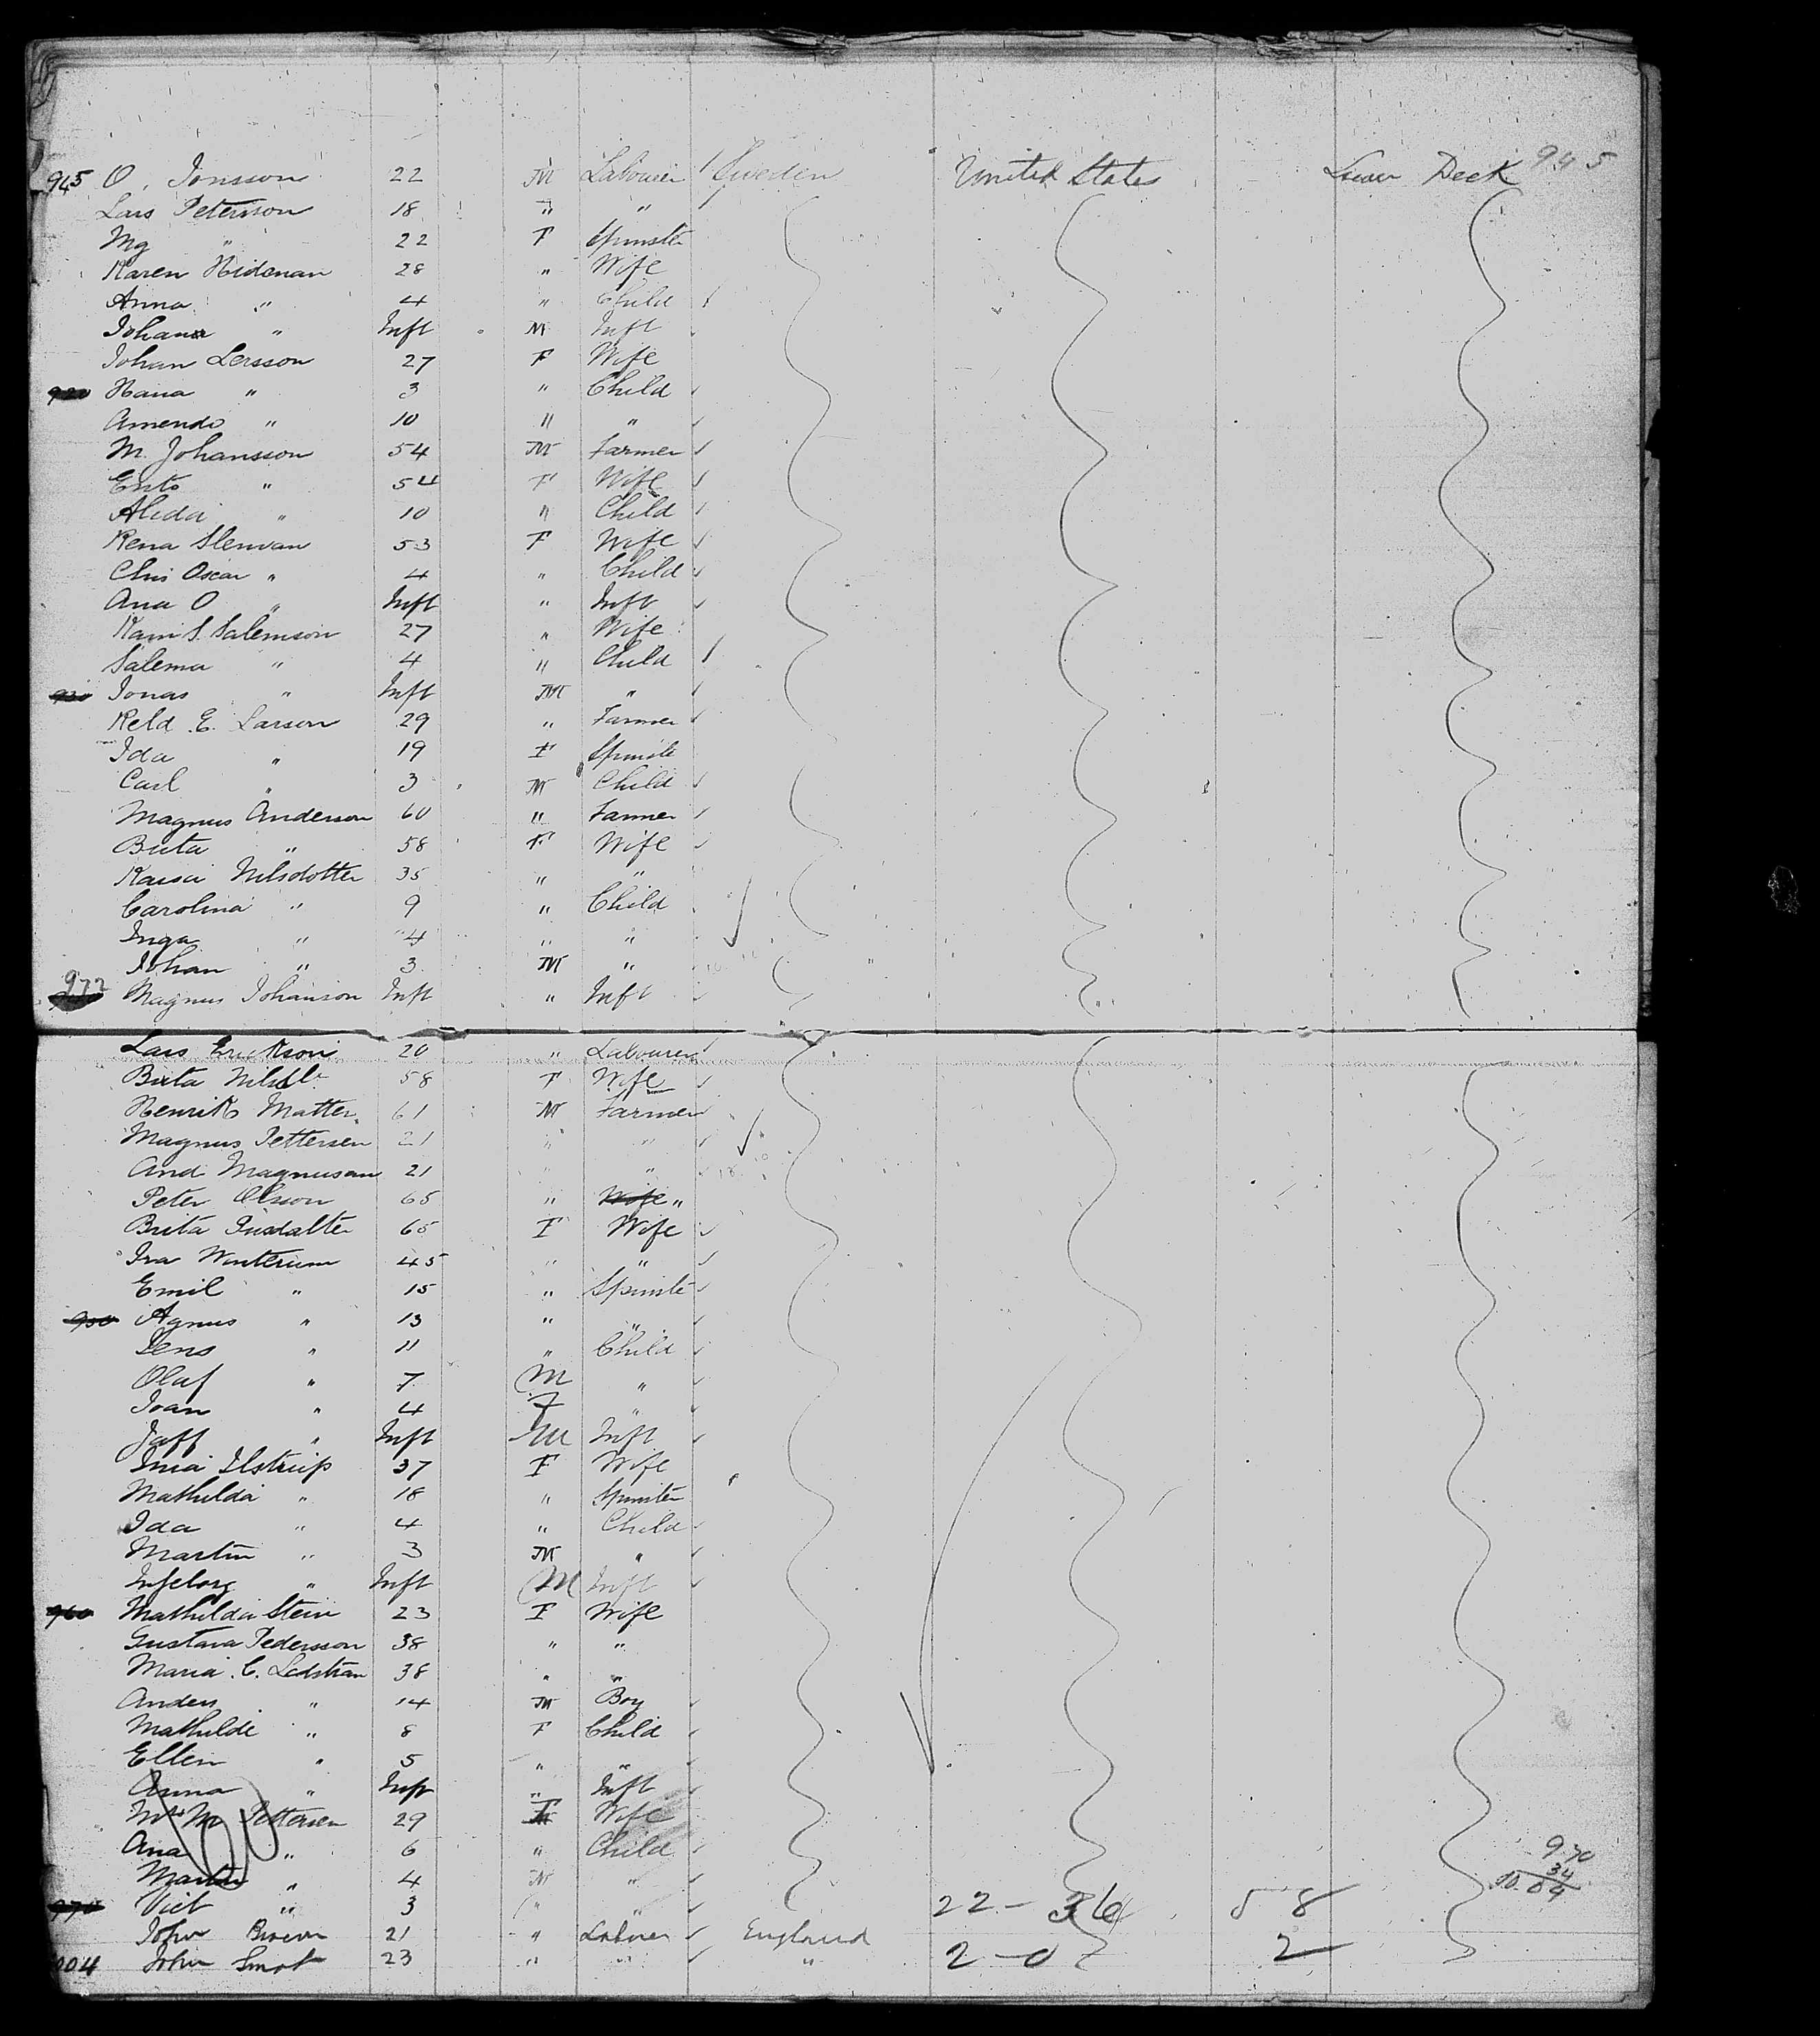 945 O. Jonsson 22 M Labourer Sweden United States Lower Deck 945
Lars Peterson 18 " "
Mg " 22 F Spinster
Karen Hidenan 28 " Wife
Anna " 4 " Child
Johan " Inft M Inft
Johan Lersson 27 F Wife
920 Hana " 3 " Child
Amendo " 10 " "
M. Johansson 54 M Farmer
" 54 F Wife
Alida " 10 " Child
Rena Slenvan 53 F Wife
Chris Oscar " 4 " Child
Ana O " Inft " Inft
Kami S. Salemson 27 " Wife
Salema " 4 " Child
930 Jonas " Inft M "
Keld E. Larson 29 " Farmer
Ida " 19 F Spinste
Carl " 3 M Child
Magnus Anderson 60 " Farmer
Brita " 58 F Wife
Kaisa Nilsdotter 35 " "
Carolina " 9 " Child
Inga " 4 " "
Johan " 3 M "
972 Magnus Johanson Inft " Inft
Lars Erickson 20 " Labourer
Brita 58 F Wife
Henrik Matter 61 M Farmer
Magnus Pettersen 21 " "
And Magnusan 21 " "
Peter Olsson 65 " Wife "
Brita 65 F Wife
Ira Winterum 45 " "
Emil " 15 " Spinste
950 Agnus " 13 " "
Lens " 11 " Child
Olaf " 7 M "
Joan " 4 F "
Jaff " Inft M Inft
Inia Ilstrup 37 F Wife
Mathilda " 18 " Spinster
Ida " 4 " Child
Martin " 3 M "
Infeborg " Inft M Inft
960 Mathilda Stein 23 F Wife
Gustava Pedersson 38 " "
Maria C. Ledstran 38 " "
Anders " 14 M Boy
Mathilde " 8 F Child
Ellen " 5 " "
Anna " Inft " Inft
Mrs M Pettersen 29 F Wife
Ana " 6 " Child
Martin " 4 M "
970 Vict " 3 " " 22 - 36 58
John Brown 21 " Labourer England
1004 John Smot 23 " " " 2 - 0 2
60
970
34
10.04